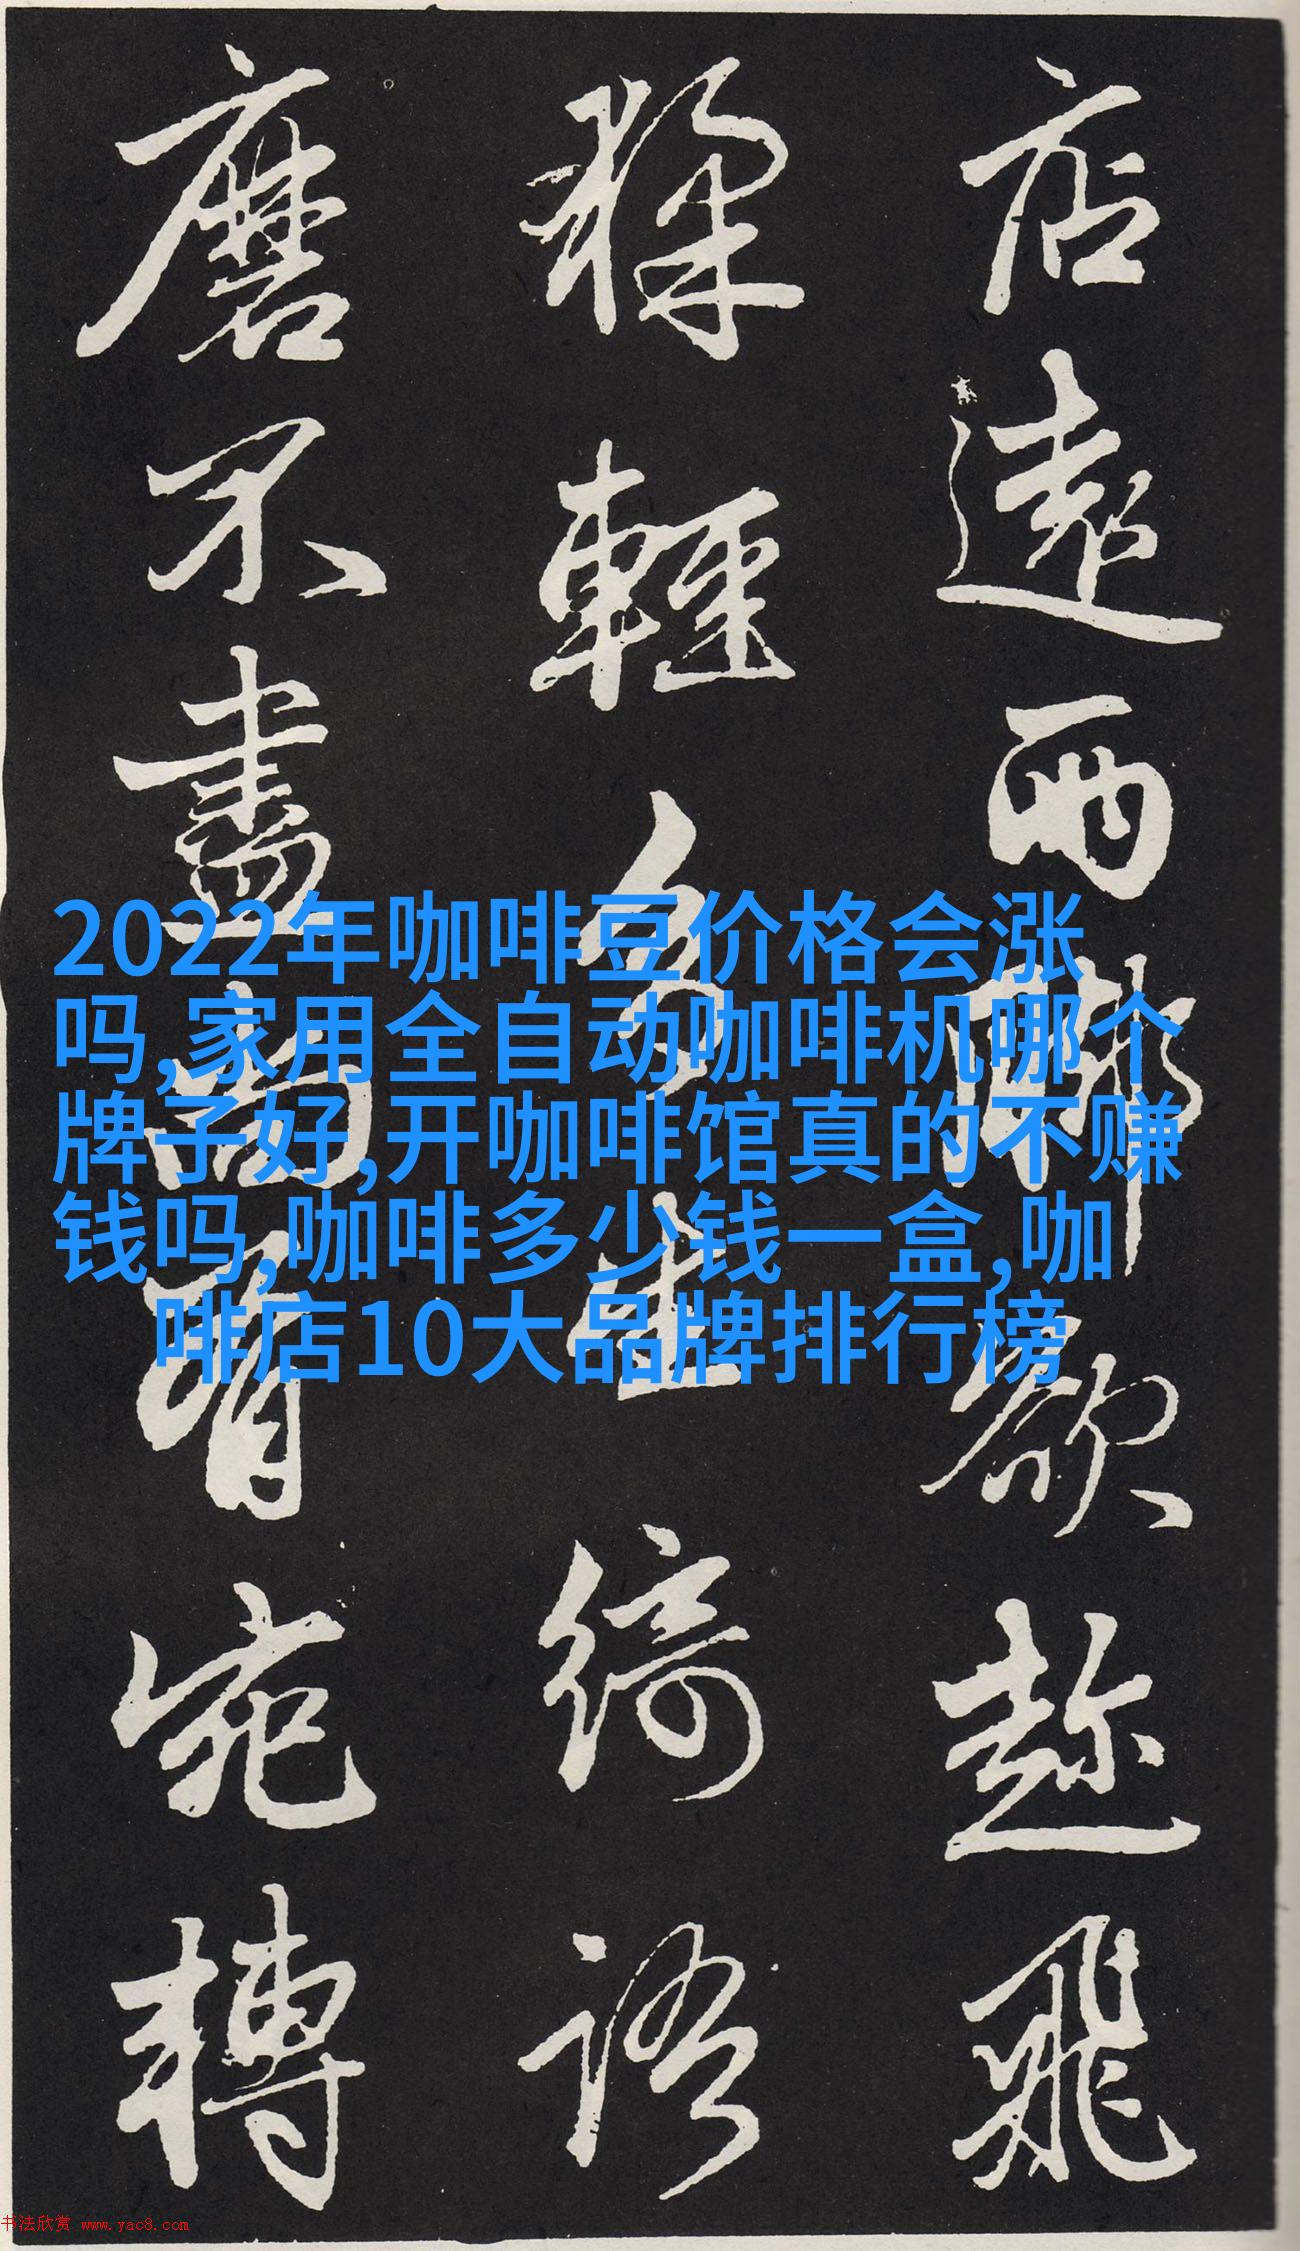 店遠兩脚欲趂飛
猱輕多生綺語
磨不盡尚有宛轉
2022年咖啡豆价格会涨
吗,家用全自动咖啡机哪个
牌子好,开咖啡馆真的不赚
钱吗,咖啡多少钱一盒,咖
啡店10大品牌排行榜
书法欣赏 www.yac8.com